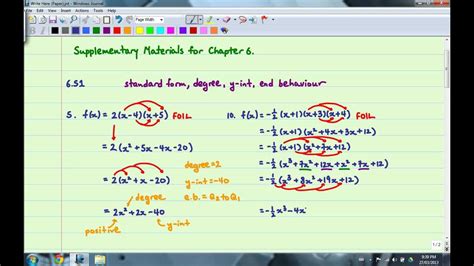 Write Here (Paper).jnt - Windows Journal
File Edit View Insert Actions Tools Help
Page Width
Supplementary Materials for Chapter 6.
6.S1 standard form, degree, y-int, end behaviour
5. f(x) = 2(x-4)(x+5) FOIL
= 2(x²+5x-4x-20)
= 2(x²+x-20)
= 2x²+2x-40
positive
degree
y-int
degree=2
y-int=-40
e.b.= Q2 to Q1
10. f(x)=-½(x+1)(x+3)(x+4) FOIL
=-½(x+1)(x²+4x+3x+12)
=-½(x+1)(x²+7x+12)
=-½(x³+7x²+12x+x²+7x+12)
=-½(x³+8x²+19x+12)
=-½x³-4x
1/2
9:39 PM
27/03/2013